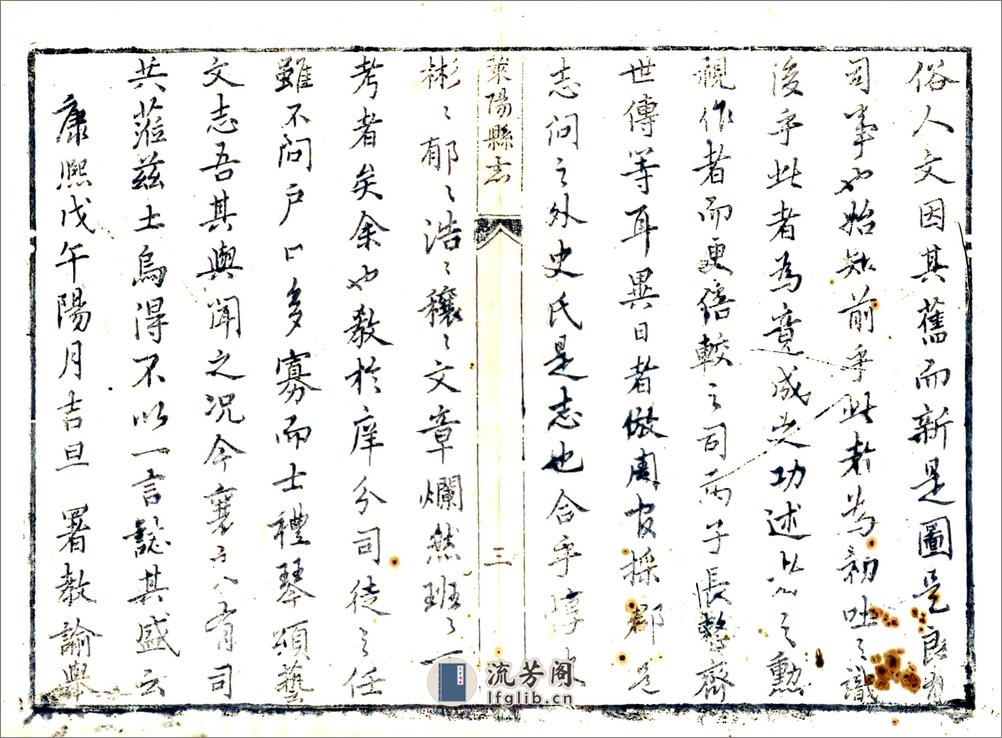 俗人文因其舊而新是圖是良有
司事也始知前乎此者為初吐之識
後乎此者為竟成之功述作之勳
視作者而更倍較之司馬子長
世傳等耳異日者倣周官採
志問之外史氏是志也合乎
萊陽縣志
三
彬〻郁〻浩〻穰〻文章爛然班〻可
考者矣余也教於庠分司徒之任
雖不問戶口多寡而士禮琴頌藝
文志吾其與聞之況今襄 有司
共蒞茲土烏得不以一言誌其盛云
康熙戊午陽月吉旦 署教諭舉
流芳阁
lfglib.cn